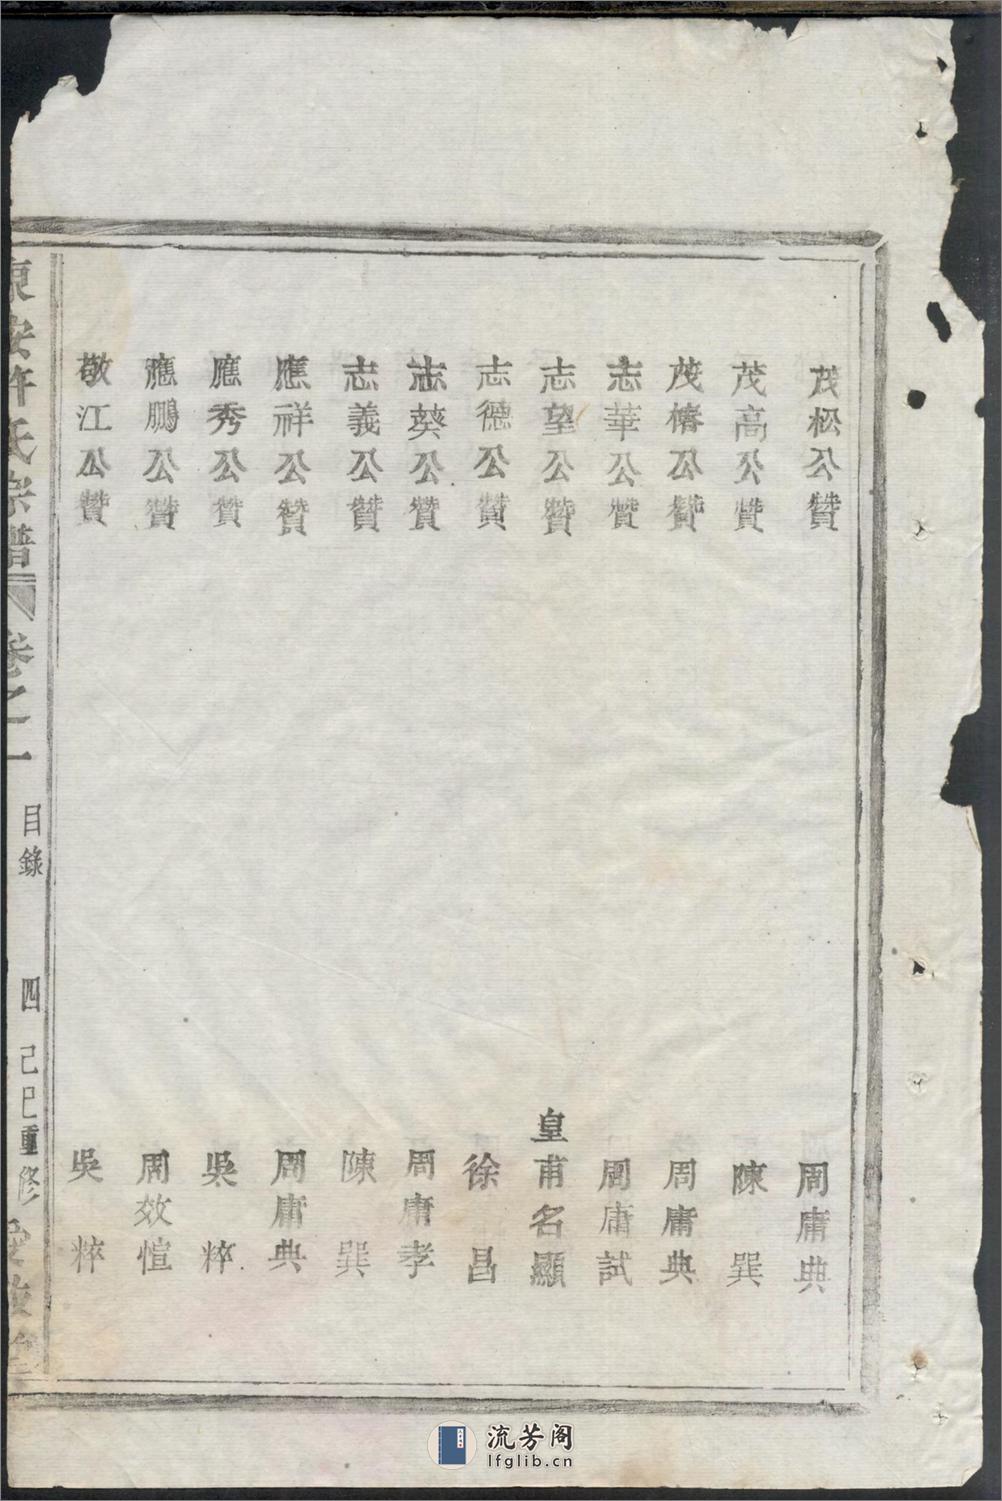 茂松公贊 周庸典
茂高公贊 陳巽
茂椿公贊 周庸典
志華公贊 周庸試
志望公贊 皇甫名顯
志德公贊 徐昌
志葵公贊 周庸孝
志義公贊 陳巽
應祥公贊 周庸典
應秀公贊 吳粹
應鵬公贊 周效愃
敬江公贊 吳粹
東安許氏宗譜 卷之一 目錄 四 己巳重修
流芳阁
lfglib.cn